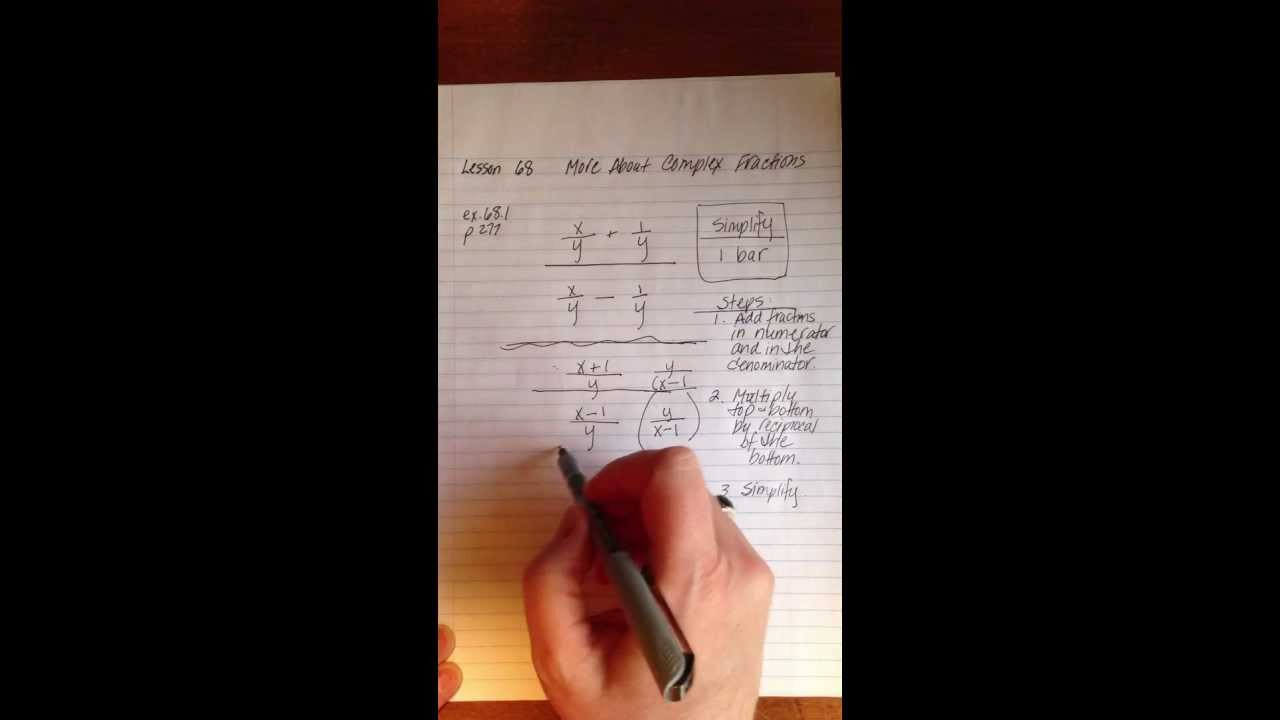 Lesson 68 More About Complex Fractions
ex. 68.1
p 277
x/y + 1/y
x/y − 1/y
Simplify
1 bar
x+1/y y/(x−1
x−1/y (y/x−1)
Steps:
1. Add fractions
in numerator
and in the
denominator.
2. Multiply
top + bottom
by reciprocal
of the
bottom.
3 Simplify.